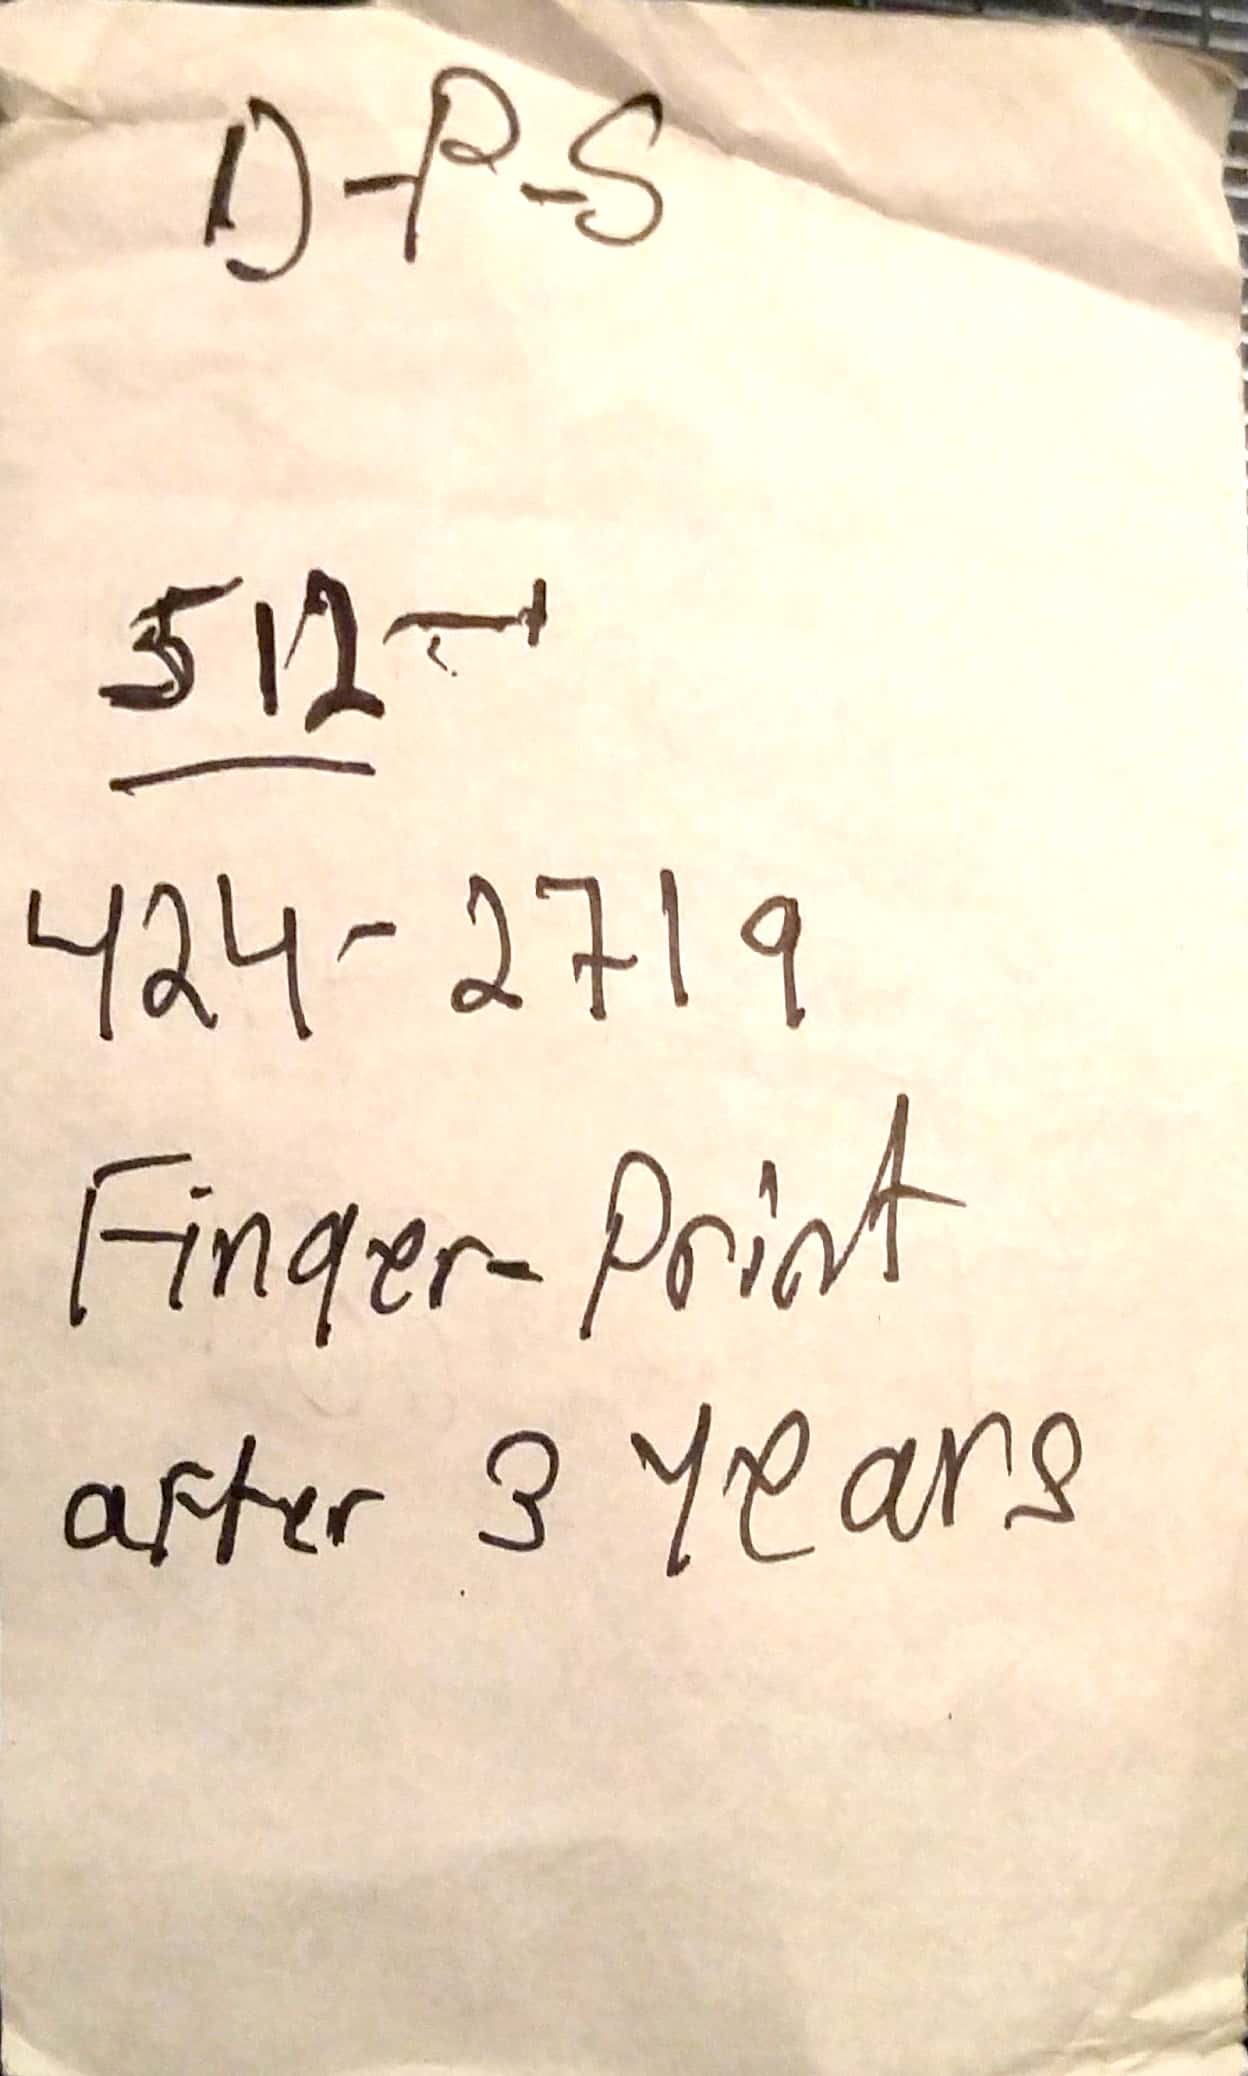 D-P-S
512-
424-2719
Finger-Print
after 3 years